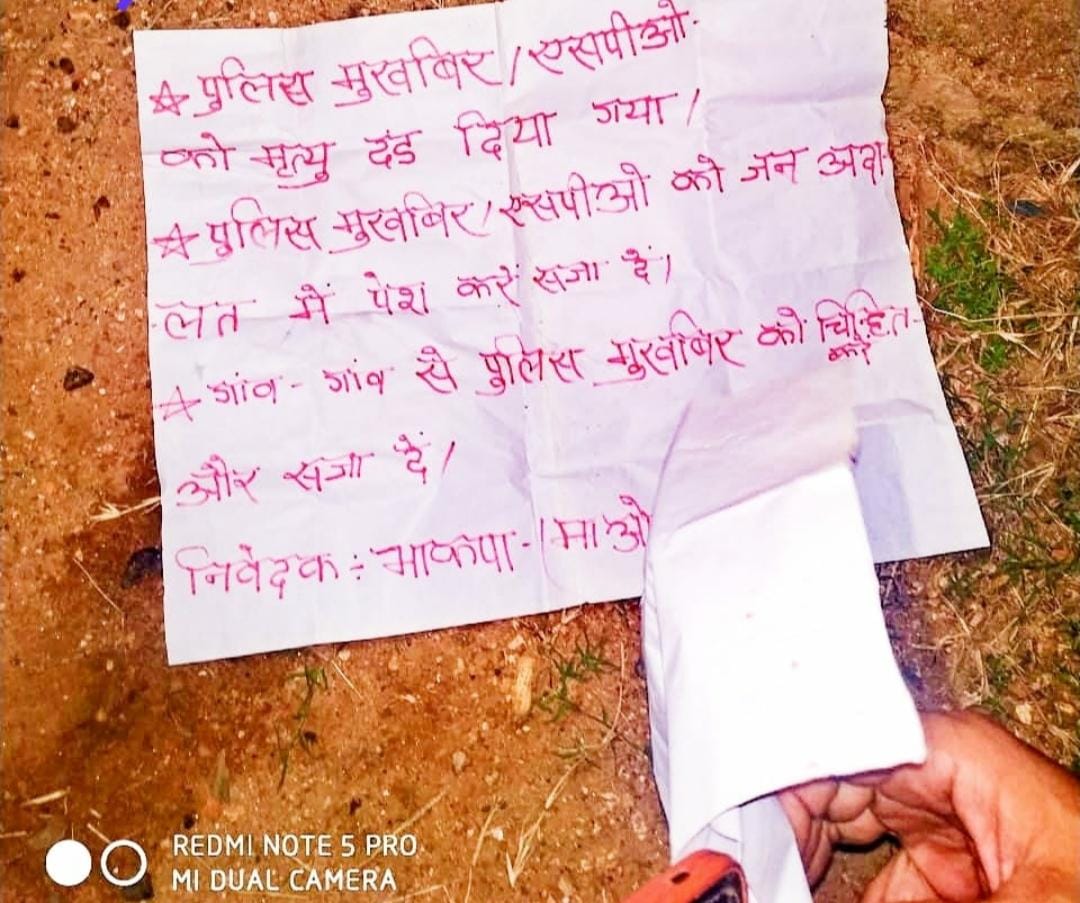 ☆ पुलिस मुखबिर/एसपीओ
को मृत्यु दंड दिया गया।
☆ पुलिस मुखबिर/एसपीओ को जन अदा-
लत में पेश करें सजा दें।
☆ गांव-गांव से पुलिस मुखबिर को चिन्हित
करें
और सजा दें।
निवेदक ÷ भाकपा-(माओ
REDMI NOTE 5 PRO
MI DUAL CAMERA